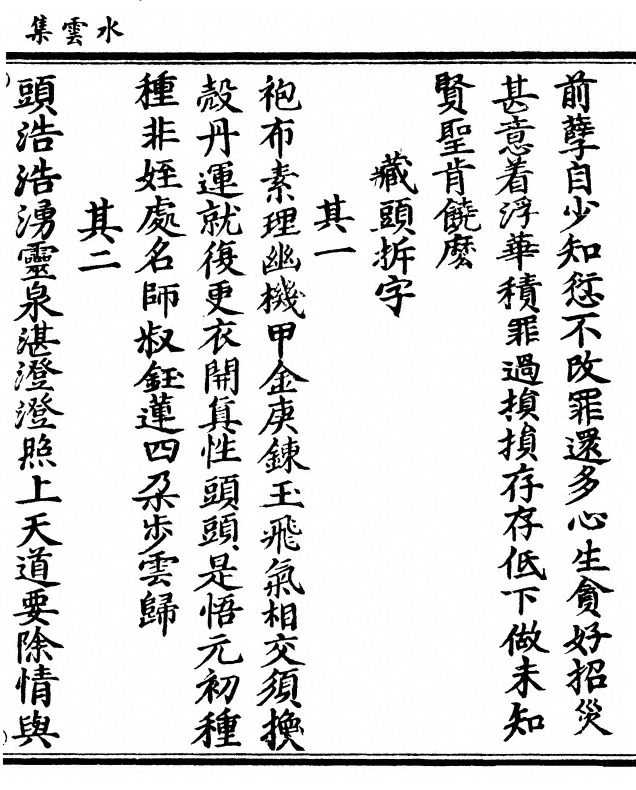 水雲集
前孽自少知愆不改罪還多心生貪好招災
甚意着浮華積罪過損損存存低下做未知
賢聖肯饒麽
藏頭拆字
其一
袍布素理幽機甲金庚鍊玉飛氣相交須換
殼丹運就復更衣開真性頭頭是悟元初種
種非姪處名師叔鈺蓮四朶步雲歸
其二
頭浩浩湧靈泉湛澄澄照上天道要除情與